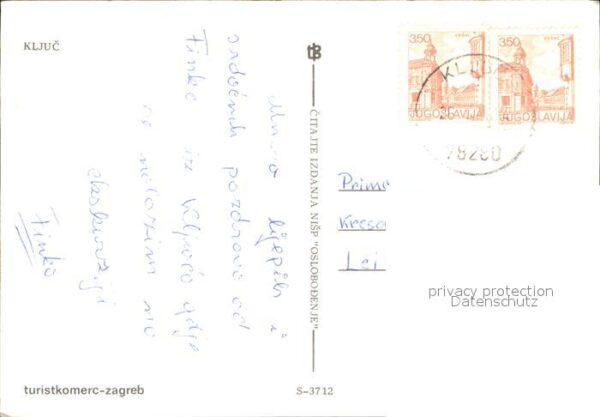 KLJUČ
Mnogo lijepih i
srdačnih pozdrava od
Finke iz Ključa gdje
se nalazim na
ekskurziji
Finka
turistkomerc-zagreb
ČITAJTE IZDANJA NIŠP "OSLOBOĐENJE"
S-3712
350
JUGOSLAVIJA
350
JUGOSLAVIJA
KLJUČ
79280
privacy protection
Datenschutz